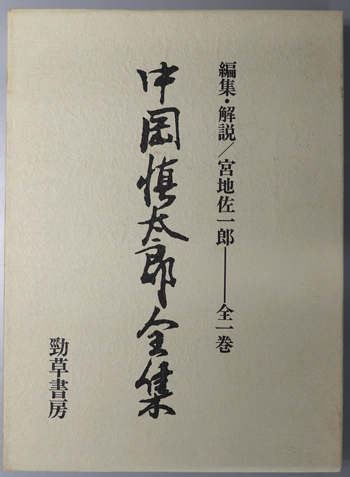 編集・解説／宮地佐一郎――全一巻
中岡慎太郎全集
勁草書房